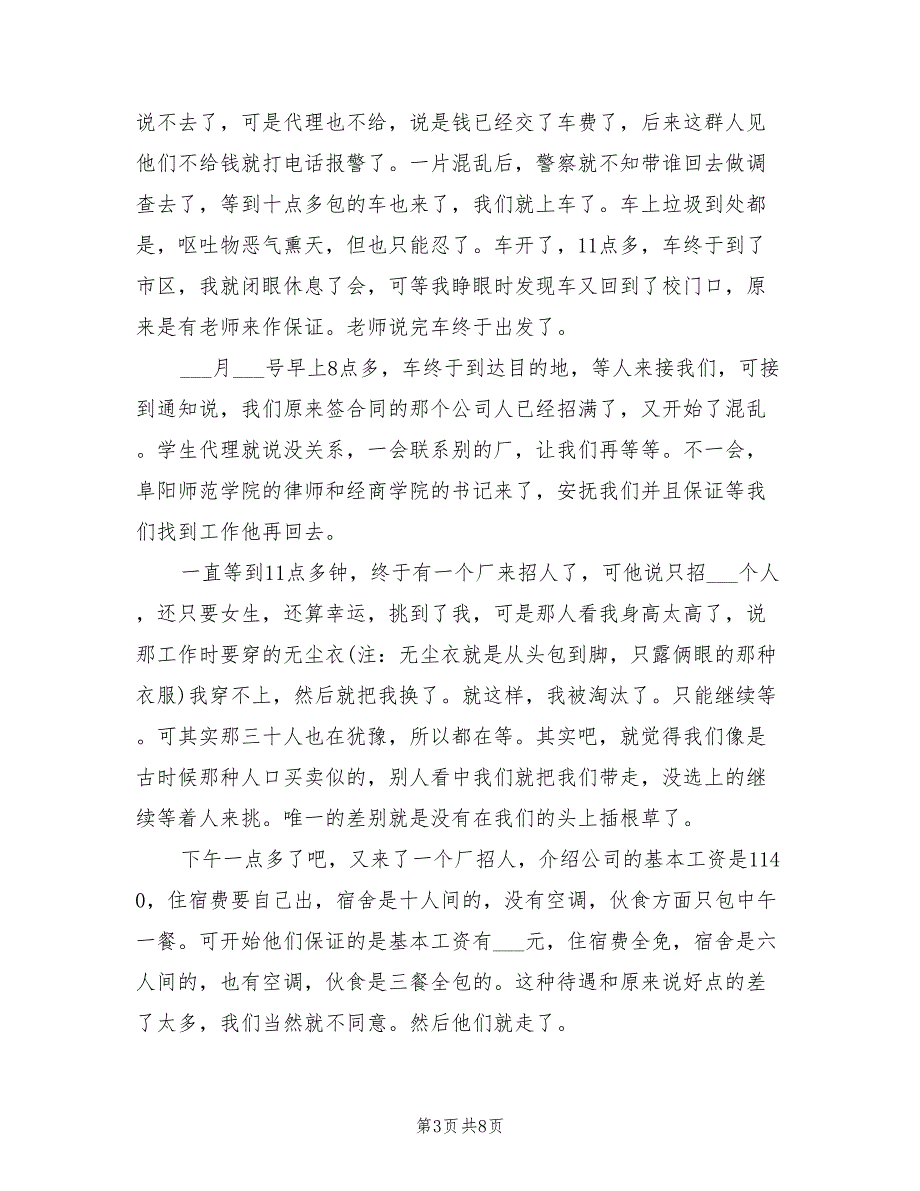 说不去了，可是代理也不给，说是钱已经交了车费了，后来这群人见
他们不给钱就打电话报警了。一片混乱后，警察就不知带谁回去做调
查去了，等到十点多包的车也来了，我们就上车了。车上垃圾到处都
是，呕吐物恶气熏天，但也只能忍了。车开了，11点多，车终于到了
市区，我就闭眼休息了会，可等我睁眼时发现车又回到了校门口，原
来是有老师来作保证。老师说完车终于出发了。
___月___号早上8点多，车终于到达目的地，等人来接我们，可接
到通知说，我们原来签合同的那个公司人已经招满了，又开始了混乱
。学生代理就说没关系，一会联系别的厂，让我们再等等。不一会，
阜阳师范学院的律师和经商学院的书记来了，安抚我们并且保证等我
们找到工作他再回去。
一直等到11点多钟，终于有一个厂来招人了，可他说只招___个人
，还只要女生，还算幸运，挑到了我，可是那人看我身高太高了，说
那工作时要穿的无尘衣(注：无尘衣就是从头包到脚，只露俩眼的那种
衣服)我穿不上，然后就把我换了。就这样，我被淘汰了。只能继续等
。可其实那三十人也在犹豫，所以都在等。其实吧，就觉得我们像是
古时候那种人口买卖似的，别人看中我们就把我们带走，没选上的继
续等着人来挑。唯一的差别就是没有在我们的头上插根草了。
下午一点多了吧，又来了一个厂招人，介绍公司的基本工资是114
0，住宿费要自己出，宿舍是十人间的，没有空调，伙食方面只包中午
一餐。可开始他们保证的是基本工资有___元，住宿费全免，宿舍是六
人间的，也有空调，伙食是三餐全包的。这种待遇和原来说好点的差
了太多，我们当然就不同意。然后他们就走了。
第3页 共8页